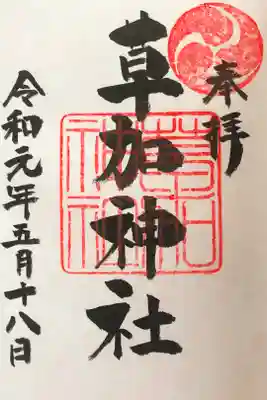 奉拝
草加神社
令和元年五月十八日
草加
神社